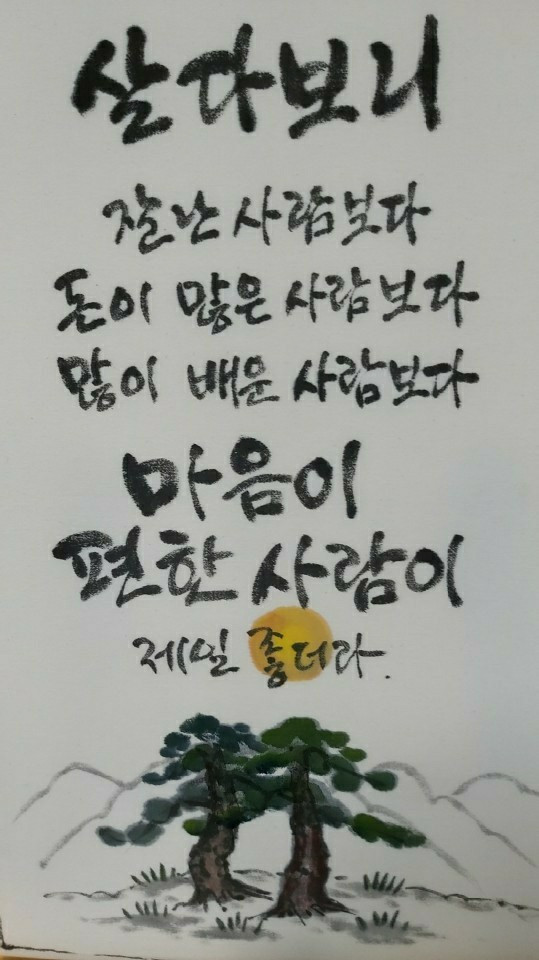 살다보니
잘난 사람보다
돈이 많은 사람보다
많이 배운 사람보다
마음이
편한 사람이
제일 좋더라.